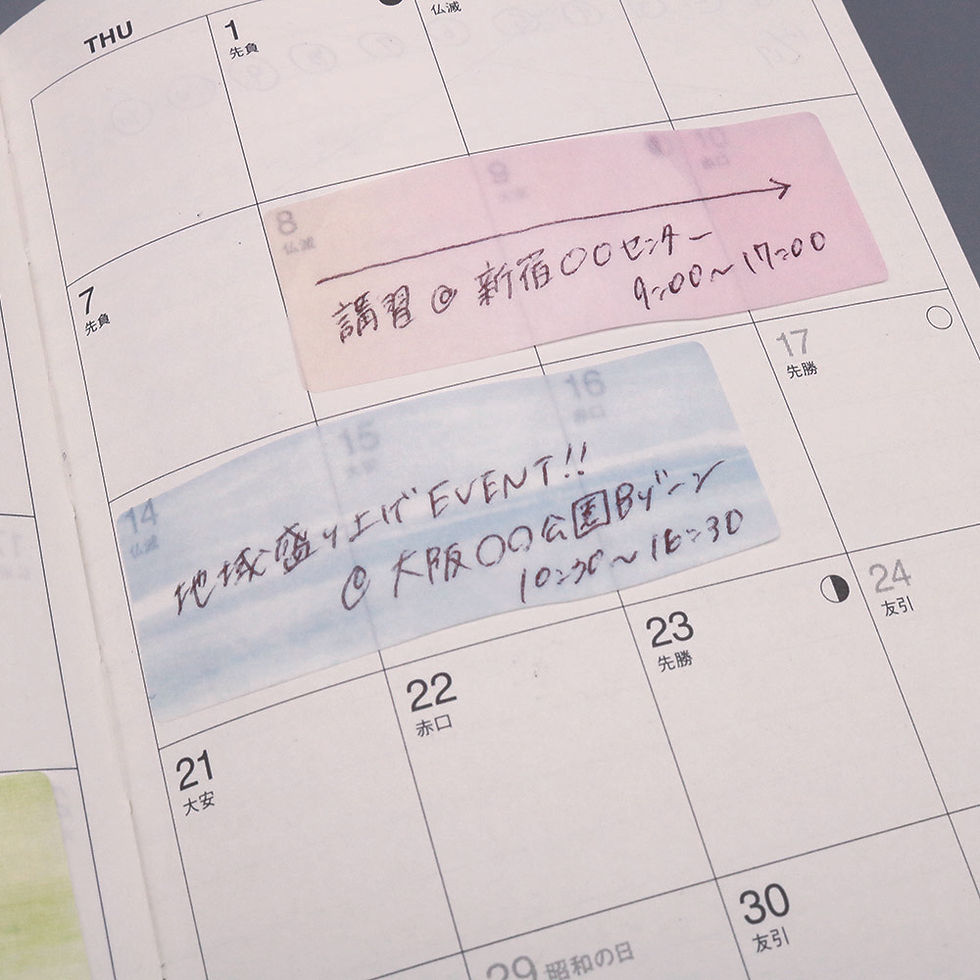 THU
1
先負
仏滅
7
先負
8
仏滅
9
10
赤口
講習@新宿〇〇センター
9:00~17:00
14
仏滅
15
16
赤口
17
先勝
地域盛り上げEVENT!!
@大阪〇〇公園Bゾーン
10:30~16:30
21
大安
22
赤口
23
先勝
24
友引
29 昭和の日
30
友引